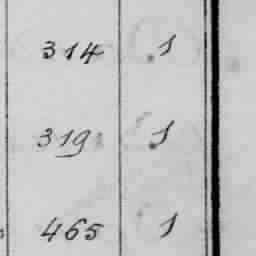 314 1
319 1
465 1